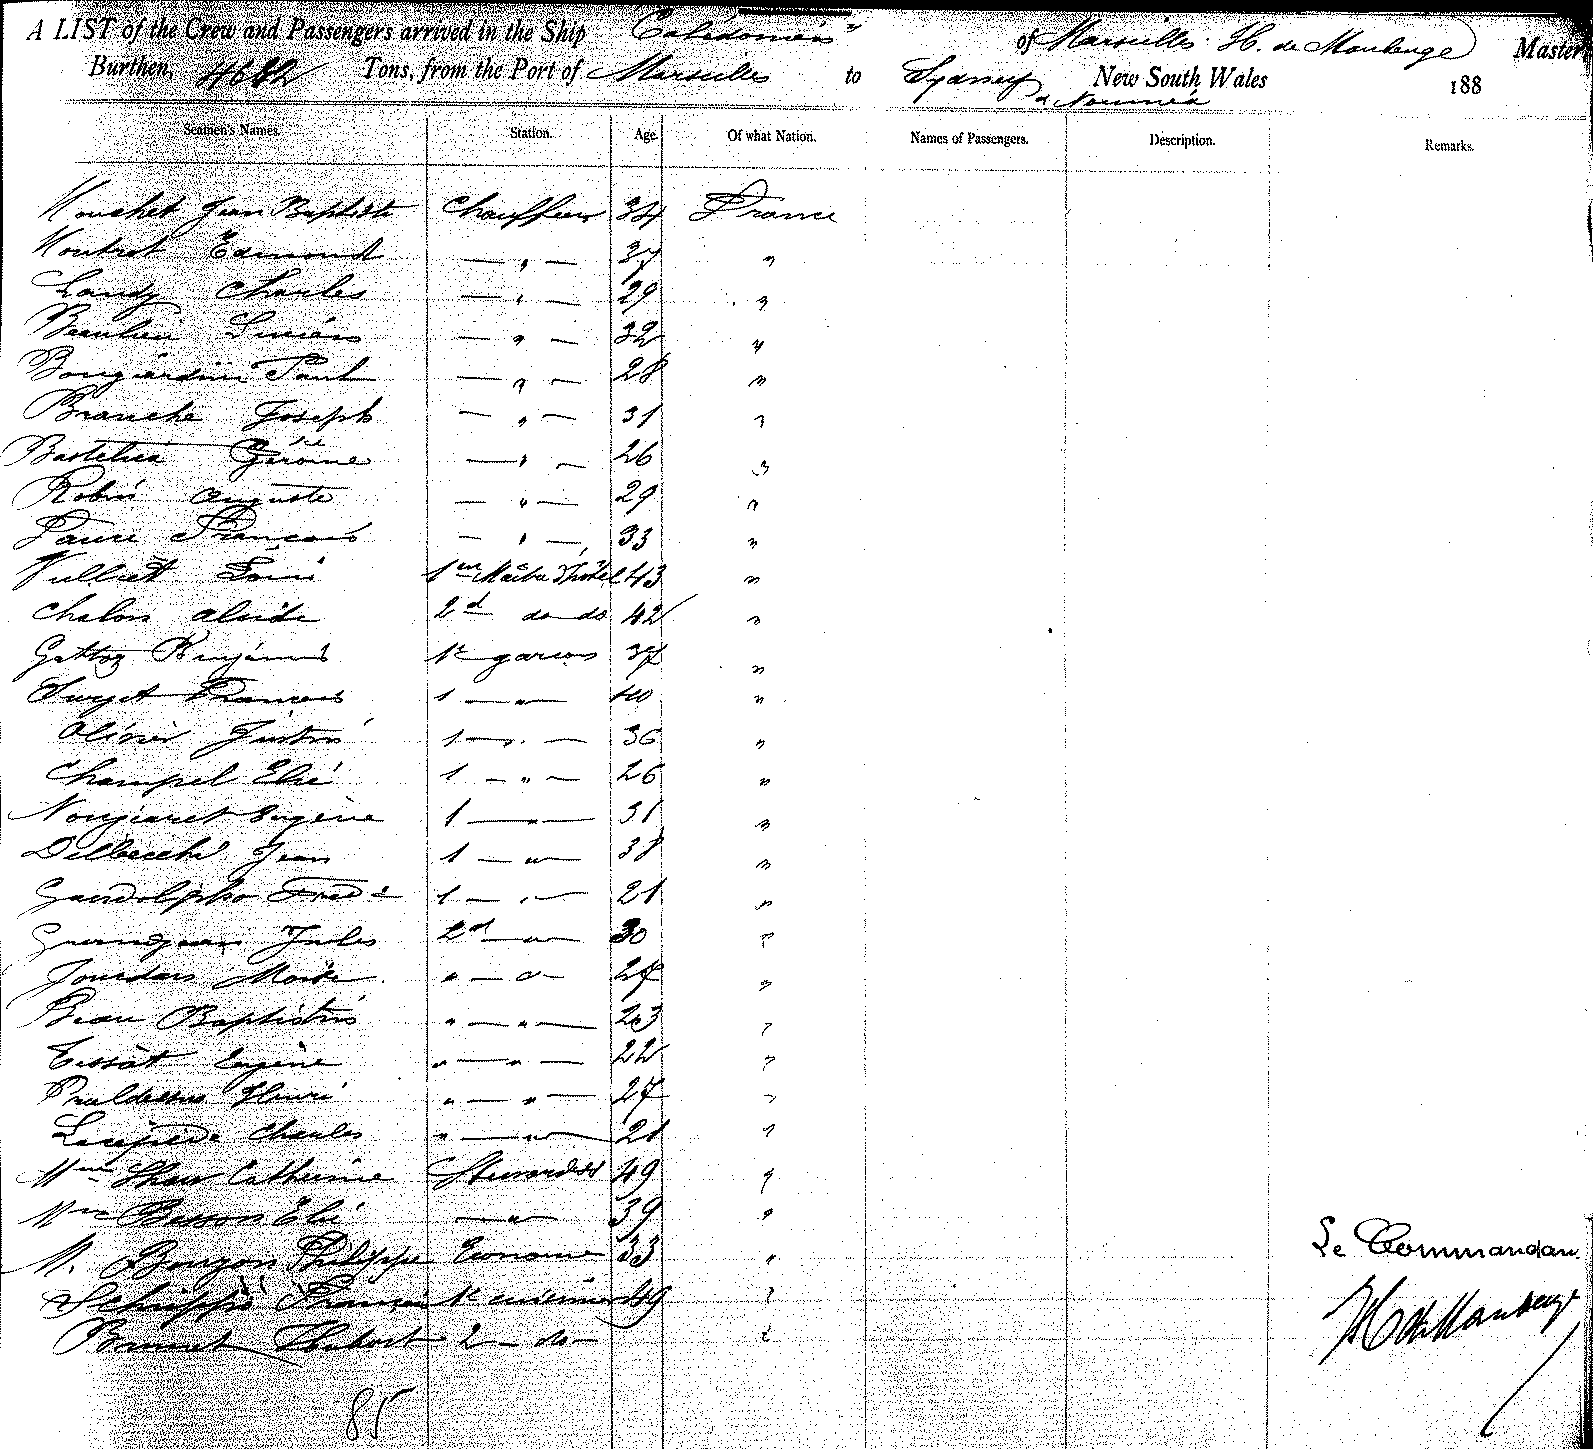 A LIST of the Crew and Passengers arrived in the Ship "Calédonien" of Marseilles H. de Maubeuge Master
Burthen, 4682 Tons, from the Port of Marseilles to Sydney New South Wales 188
& Nouméa
Seamen's Names. Station. Age. Of what Nation. Names of Passengers. Description. Remarks.
Jean Baptiste Chauffeur 34 France
Edmond — " — 27 "
Landy Charles — " — 29 "
Beaulieu Lucien — " — 32 "
Paul — " — 28 "
Branche Joseph — " — 31 "
Bastelica Gérome — " — 26 "
Robin Auguste — " — 29 "
Faure François — " — 33 "
Vulliett Louis 1er Maître d'hôtel 43 "
Chalon Alcide 2d do do 42 "
Benjamin 1r garcon 37 "
François 1 — " — 40 "
Olivier Justin 1 — " — 36 "
Champel Elie 1 — " — 26 "
Nougiaret Eugène 1 — " — 31 "
Delbecchi Jean 1 — " — 38 "
Gandolpho Fredc 1 — " — 21 "
Jules 2d — " — 30 "
Jourdan " — " — 27 "
Beau Baptistin " — " — 23 "
Tissot Eugène " — " — 22 "
Henri " — " — 27 "
Charles " — " — 21 "
Mme Shaw Catherine Stewardess 49 "
Mme Besson Elie — " — 39 "
M. Bougon Philippe Econome 33 "
1r cuisinier 49 "
2 — do — "
85
Le Commandan
H de Maubeuge